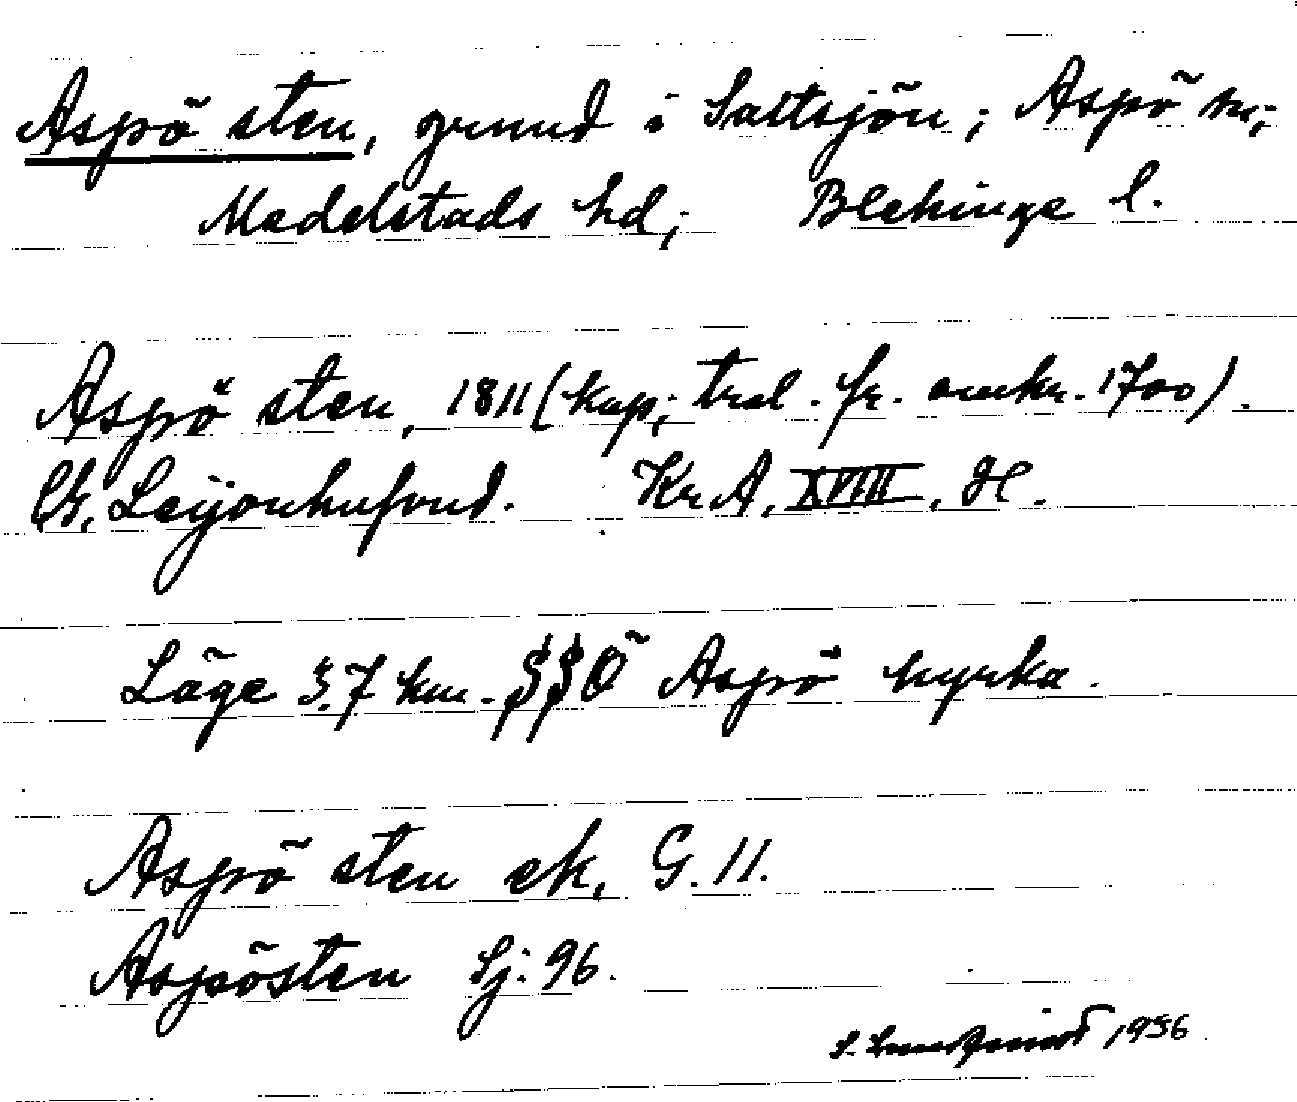 Aspö sten, grund i Saltsjön; Aspö sn;
Medelstads hd; Blekinge l.
Aspö sten, 1811 (kop; trol. fr. omkr. 1700).
G. Leijonhufvud. KrA, XVIII, H.
Läge 3.7 km. SSÖ Aspö kyrka.
Aspö sten ek, G. 11.
Aspösten Sj: 96.
S. 1956